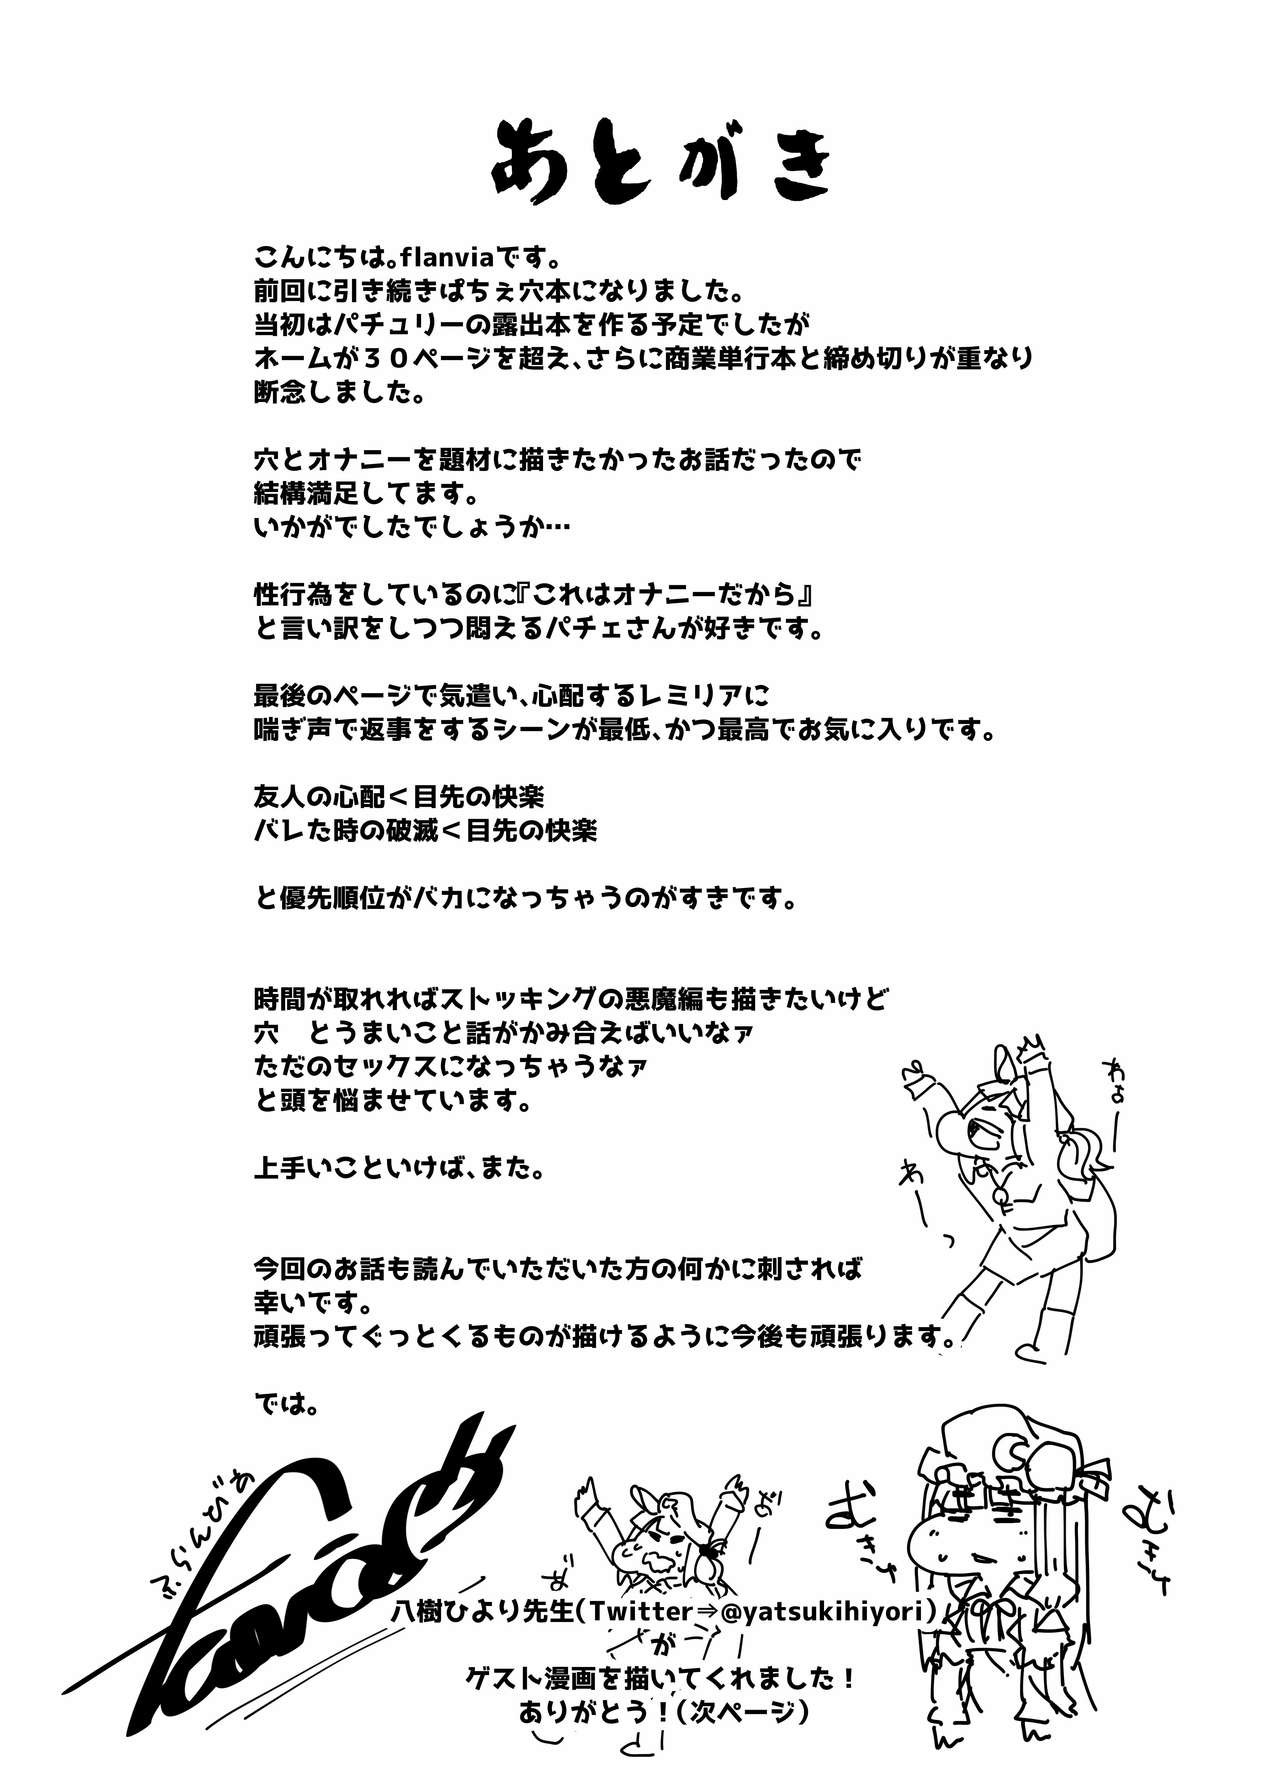 あとがき
こんにちは。flanviaです。
前回に引き続きぱちぇ穴本になりました。
当初はパチュリーの露出本を作る予定でしたが
ネームが３０ページを超え、さらに商業単行本と締め切りが重なり
断念しました。
穴とオナニーを題材に描きたかったお話だったので
結構満足してます。
いかがでしたでしょうか…
性行為をしているのに『これはオナニーだから』
と言い訳をしつつ悶えるパチェさんが好きです。
最後のページで気遣い、心配するレミリアに
喘ぎ声で返事をするシーンが最低、かつ最高でお気に入りです。
友人の心配＜目先の快楽
バレた時の破滅＜目先の快楽
と優先順位がバカになっちゃうのがすきです。
時間が取れればストッキングの悪魔編も描きたいけど
穴　とうまいこと話がかみ合えばいいなァ
ただのセックスになっちゃうなァ
と頭を悩ませています。
上手いこといけば、また。
わぉー
わーっ
今回のお話も読んでいただいた方の何かに刺されば
幸いです。
頑張ってぐっとくるものが描けるように今後も頑張ります。
では。
ふらんびあ
むきゅ
むきゅ
八樹ひより先生（Twitter⇒@yatsukihiyori）
が
ゲスト漫画を描いてくれました！
ありがとう！（次ページ）